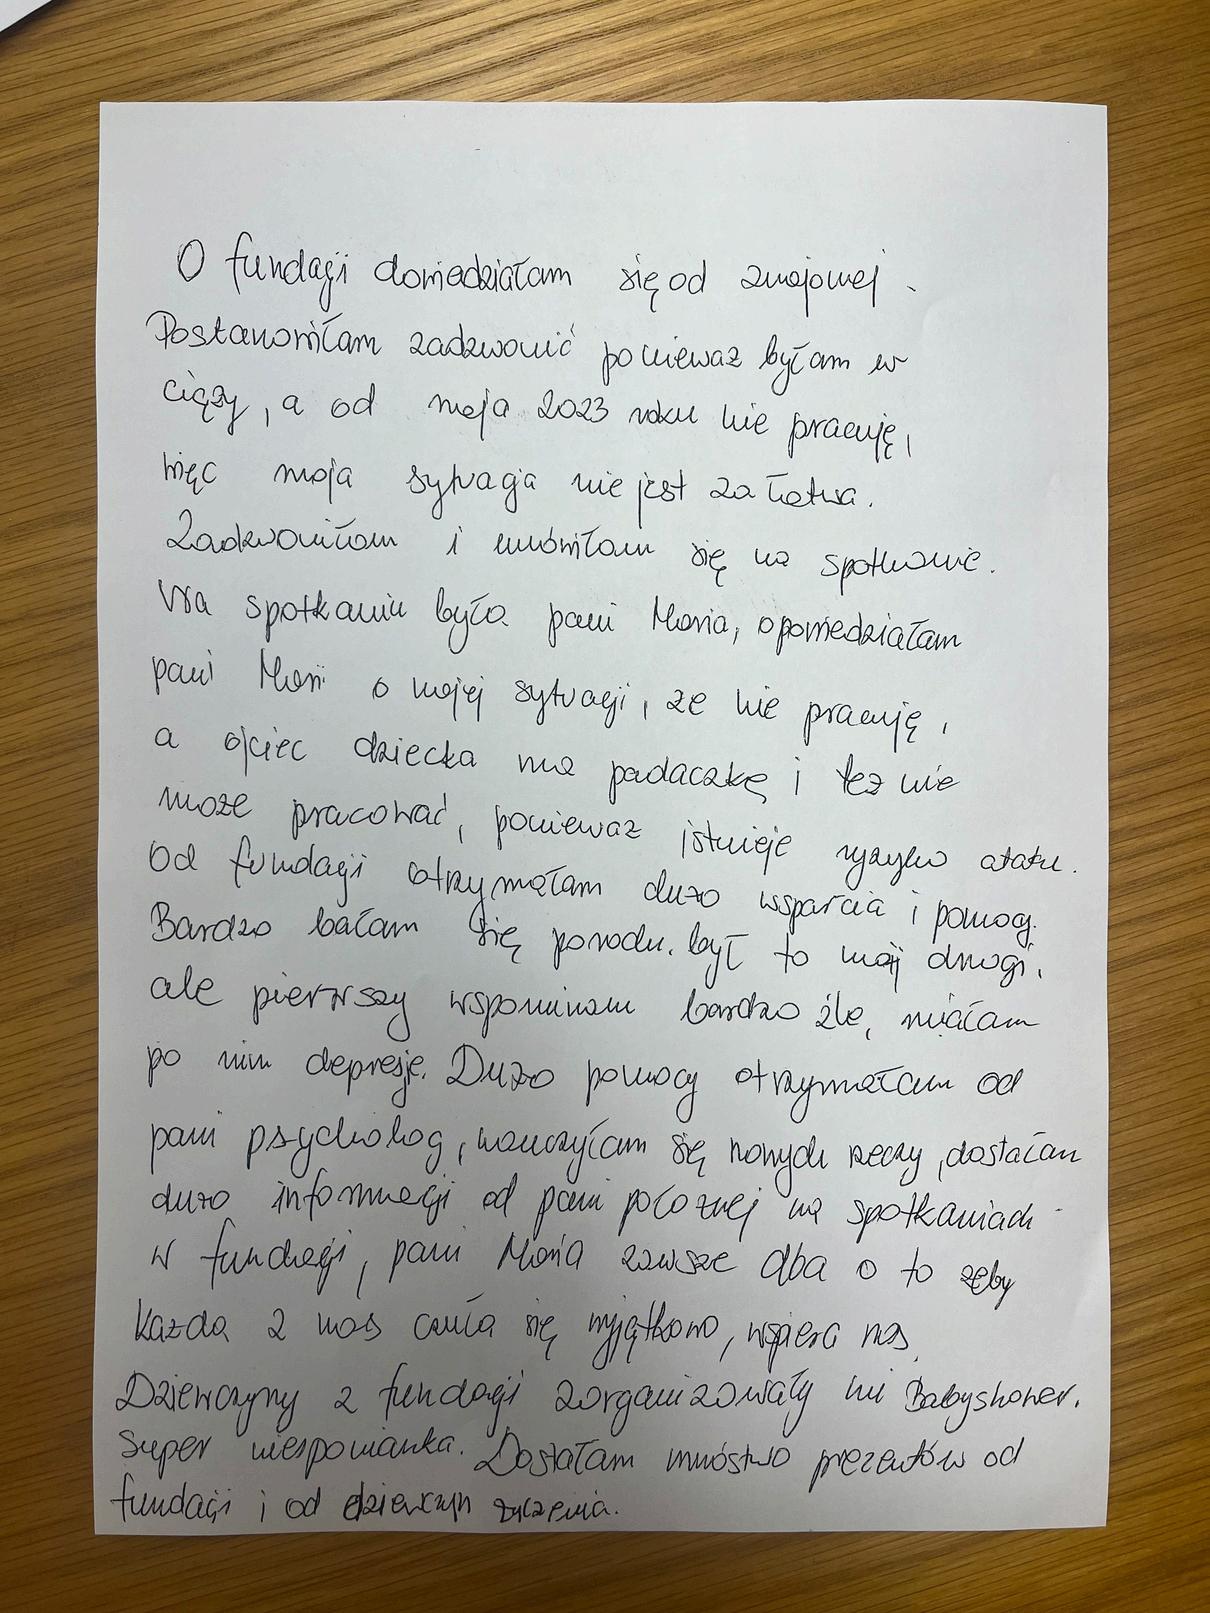 O fundacji dowiedziałam się od znajomej.
Postanowiłam zadzwonić ponieważ byłam w
ciąży, a od maja 2023 roku nie pracuję,
więc moja sytuacja nie jest za łatwa.
Zadzwoniłam i umówiłam się na spotkanie.
Na spotkaniu była pani Maria, opowiedziałam
pani Marii o mojej sytuacji, że nie pracuję,
a ojciec dziecka ma padaczkę i też nie
może pracować, ponieważ istnieje ryzyko ataku.
Od fundacji otrzymałam dużo wsparcia i pomocy.
Bardzo bałam się porodu. był to mój drugi,
ale pierwszy wspominam bardzo źle, miałam
po nim depresje. Dużo pomocy otrzymałam od
pani psycholog, nauczyłam się nowych rzeczy, dostałam
dużo informacji od pani położnej na spotkaniach
w fundacji, pani Maria zawsze dba o to żeby
każda z nas czuła się wyjątkowo, wspiera nas.
Dziewczyny z fundacji zorganizowały mi Babyshower.
Super niespodzianka. Dostałam mnóstwo prezentów od
fundacji i od dziewczyn życzenia.